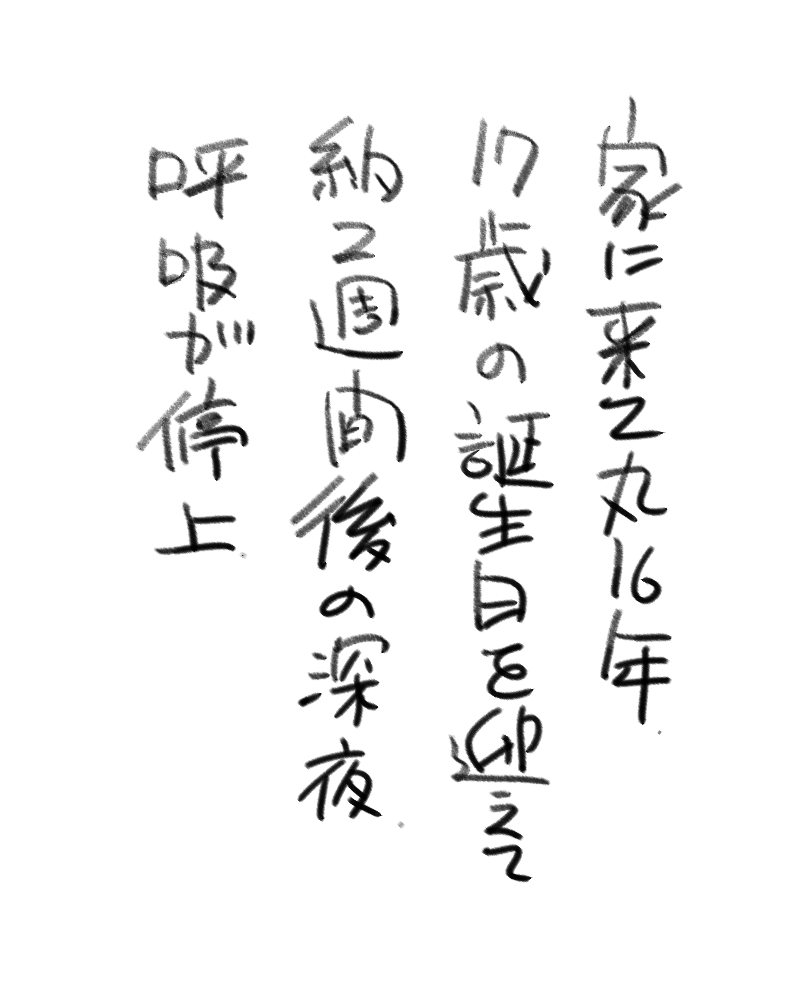 家に来て丸16年
17歳の誕生日を迎えて
約2週間後の深夜
呼吸が停止